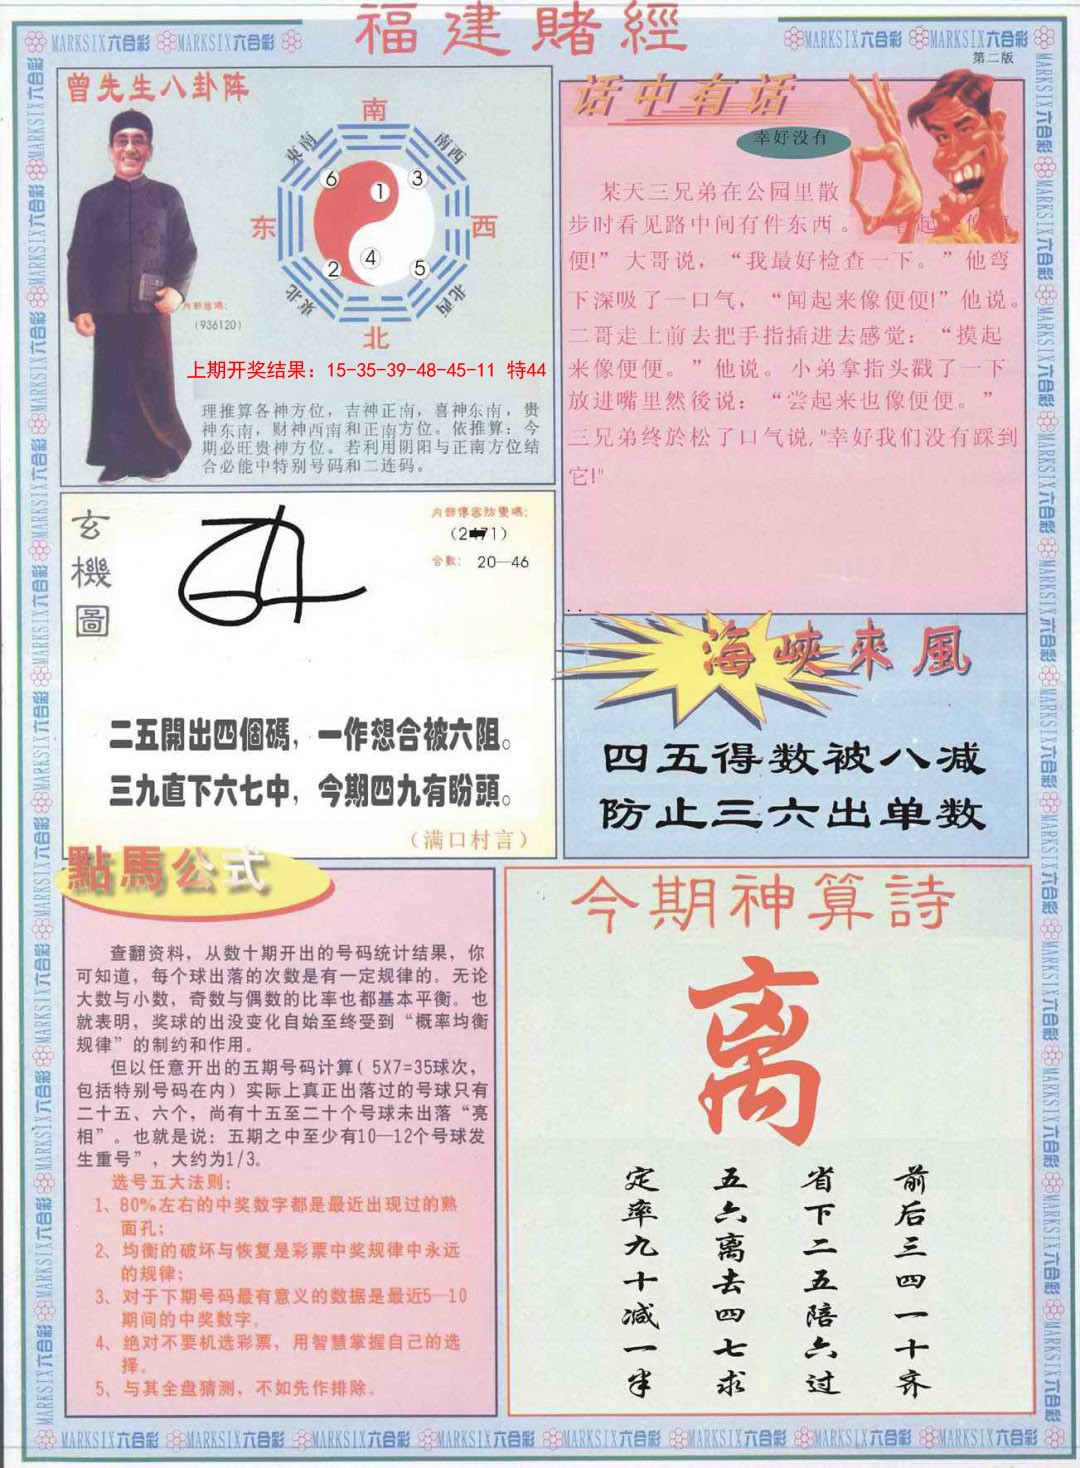 福建賭經
MARKSIX六合彩 MARKSIX六合彩
MARKSIX六合彩 MARKSIX六合彩
第二版
曾先生八卦阵
南
東南
南西
6
1
3
东
西
2
4
5
東北
北西
北
内部密碼:
(936120)
上期开奖结果：15-35-39-48-45-11 特44
理推算各神方位，吉神正南，喜神东南，贵
神东南，财神西南和正南方位。依推算：今
期必旺贵神方位。若利用阴阳与正南方位结
合必能中特别号码和二连码。
话中有话
幸好没有
某天三兄弟在公园里散
步时看见路中间有件东西。“看起来像便
便!”大哥说，“我最好检查一下。”他弯
下深吸了一口气，“闻起来像便便!”他说。
二哥走上前去把手指插进去感觉：“摸起
来像便便。”他说。小弟拿指头戳了一下
放进嘴里然後说：“尝起来也像便便。”
三兄弟终於松了口气说,"幸好我们没有踩到
它!"
玄機圖
内部傳密防變碼:
合數: 20—46
二五開出四個碼，一作想合被六阻。
三九直下六七中，今期四九有盼頭。
（满口村言）
海峽來風
四五得数被八减
防止三六出单数
點馬公式
查翻资料，从数十期开出的号码统计结果，你
可知道，每个球出落的次数是有一定规律的。无论
大数与小数，奇数与偶数的比率也都基本平衡。也
就表明，奖球的出没变化自始至终受到“概率均衡
规律”的制约和作用。
但以任意开出的五期号码计算( 5X7=35球次，
包括特别号码在内）实际上真正出落过的号球只有
二十五、六个，尚有十五至二十个号球未出落“亮
相”。也就是说：五期之中至少有10—12个号球发
生重号”，大约为1/3。
选号五大法则：
1、80%左右的中奖数字都是最近出现过的熟
面孔；
2、均衡的破坏与恢复是彩票中奖规律中永远
的规律；
3、对于下期号码最有意义的数据是最近5—10
期间的中奖数字。
4、绝对不要机选彩票，用智慧掌握自己的选
择。
5、与其全盘猜测，不如先作排除。
今期神算詩
离
前后三四一十齐
省下二五陪六过
五六离去四七求
定率九十减一半
MARKSIX六合彩 MARKSIX六合彩 MARKSIX六合彩 MARKSIX六合彩 MARKSIX六合彩 MARKSIX六合彩 MARKSIX六合彩 MARKSIX六合彩